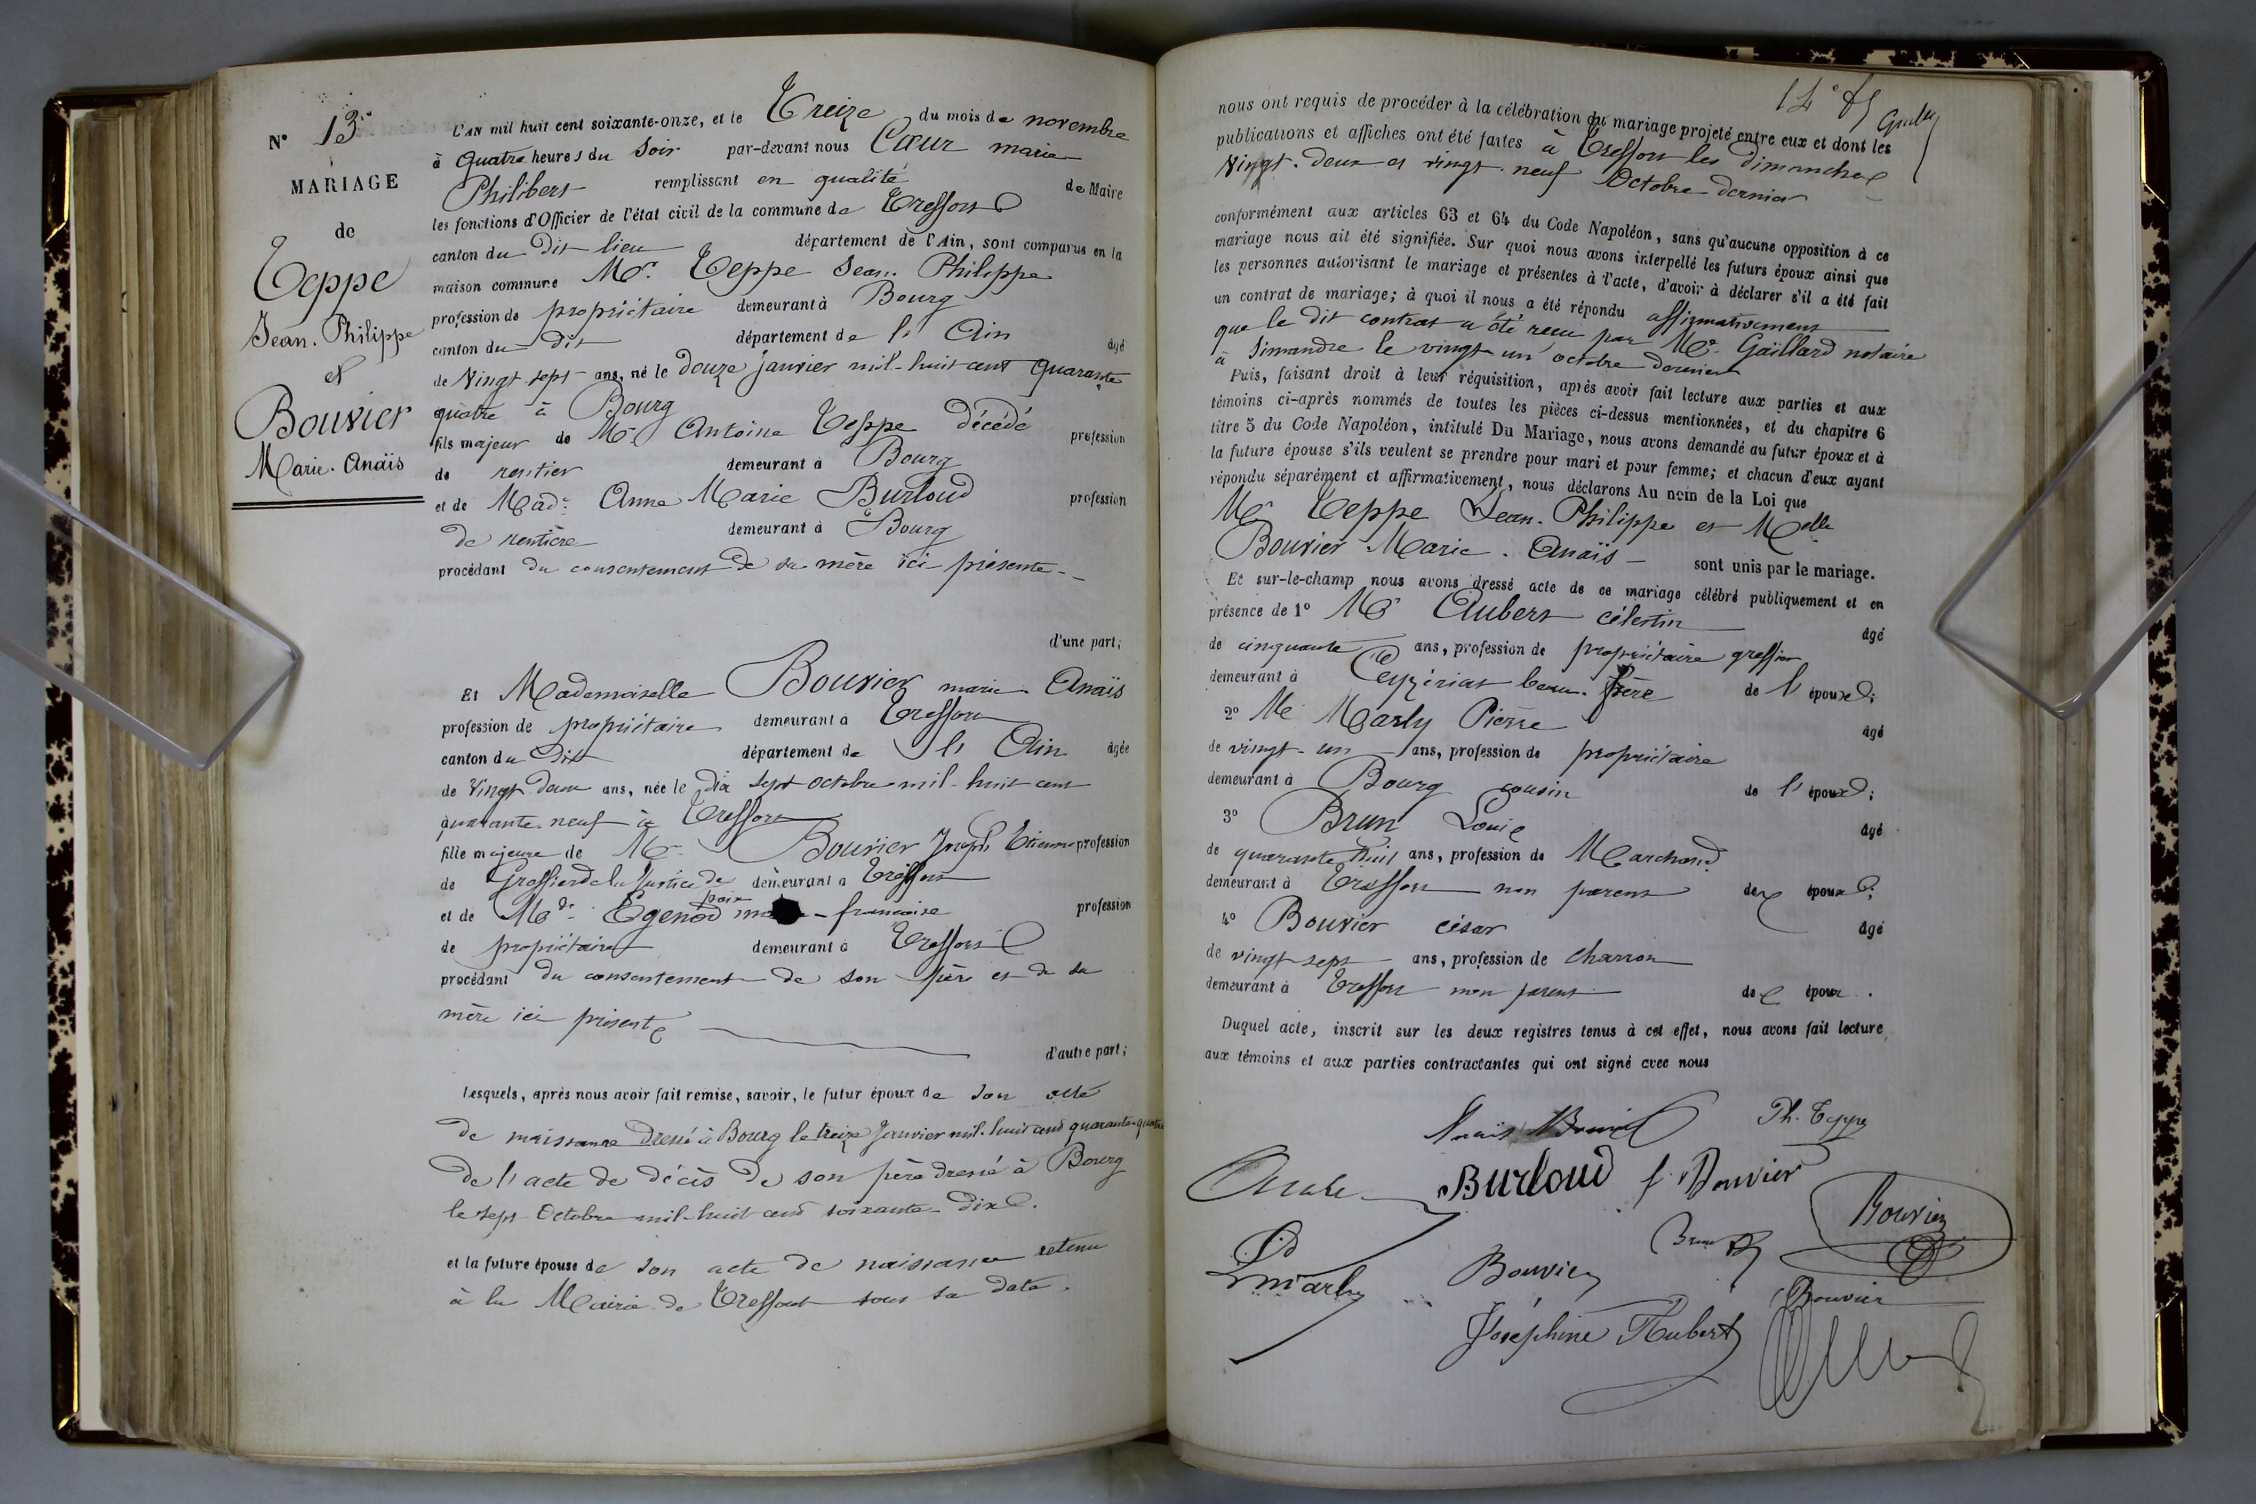 N° 13e
MARIAGE
de
Teppe
Jean-Philippe
et
Bouvier
Marie-Anaïs
L'AN mil huit cent soixante-onze, et le Treize du mois de novembre
à quatre heures du soir par-devant nous Cœur marie
Philibert remplissant en qualité de Maire
les fonctions d'Officier de l'état civil de la commune de Treffort
canton du dit lieu département de l'Ain, sont comparus en la
maison commune Mr. Teppe Jean-Philippe
profession de propriétaire demeurant à Bourg
canton du dit département de l'Ain âgé
de vingt-sept ans, né le douze janvier mil-huit cent quarante
quatre à Bourg
fils majeur de Mr Antoine Teppe décédé profession
de rentier demeurant à Bourg
et de Made Anne Marie Burloud profession
de rentière demeurant à Bourg
procédant du consentement de sa mère ici présente
d'une part;
Et Mademoiselle Bouvier marie-Anaïs
profession de propriétaire demeurant à Treffort
canton du dit département de l'Ain âgée
de vingt deux ans, née le dix sept octobre mil-huit cent
quarante-neuf à Treffort
fille majeure de Mr Bouvier Joseph Etienne profession
de Greffier de la Justice de paix demeurant à Treffort
et de Mde Egenod - francoise profession
de propriétaire demeurant à Treffort
procédant du consentement de son père et de sa
mère ici présents
d'autre part;
Lesquels, après nous avoir fait remise, savoir, le futur époux de son acte
de naissance dressé à Bourg le treize Janvier mil-huit cent quarante-quatre
de l'acte de décès de son père dressé à Bourg
le sept Octobre mil-huit cent soixante-dix.
et la future épouse de son acte de naissance retenu
à la Mairie de Treffort sous sa date.
14e
nous ont requis de procéder à la célébration du mariage projeté entre eux et dont les
publications et affiches ont été faites à Treffort les dimanches
vingt-deux et vingt-neuf Octobre dernier
conformément aux articles 63 et 64 du Code Napoléon, sans qu'aucune opposition à ce
mariage nous ait été signifiée. Sur quoi nous avons interpellé les futurs époux ainsi que
les personnes autorisant le mariage et présentes à l'acte, d'avoir à déclarer s'il a été fait
un contrat de mariage; à quoi il nous a été répondu affirmativement
que le dit contrat a été recu par Me. Gaillard notaire
à Simandre le vingt-un octobre dernier
Puis, faisant droit à leur réquisition, après avoir fait lecture aux parties et aux
témoins ci-après nommés de toutes les pièces ci-dessus mentionnées, et du chapitre 6
titre 5 du Code Napoléon, intitulé Du Mariage, nous avons demandé au futur époux et à
la future épouse s'ils veulent se prendre pour mari et pour femme; et chacun d'eux ayant
répondu séparément et affirmativement, nous déclarons Au nom de la Loi que
Mr Teppe Jean-Philippe et Melle
Bouvier Marie-Anaïs sont unis par le mariage.
Et sur-le-champ nous avons dressé acte de ce mariage célébré publiquement et en
présence de 1° Mr Aubert célestin âgé
de cinquante ans, profession de propriétaire greffier
demeurant à Ceyzériat beau-frère de l'épouse;
2° Mr Marly Pierre âgé
de vingt-un ans, profession de propriétaire
demeurant à Bourg cousin de l'époux;
3° Brun Louis âgé
de quarante huit ans, profession de Marchand
demeurant à Treffort non parent des époux;
4° Bouvier césar âgé
de vingt-sept ans, profession de charron
demeurant à Treffort non parent des époux.
Duquel acte, inscrit sur les deux registres tenus à cet effet, nous avons fait lecture
aux témoins et aux parties contractantes qui ont signé avec nous
Anaïs Bouvier Ph. Teppe
Burloud f. Bouvier
Bouvier
Brun
Marly Bouvier
Bouvier
Joséphine Aubert